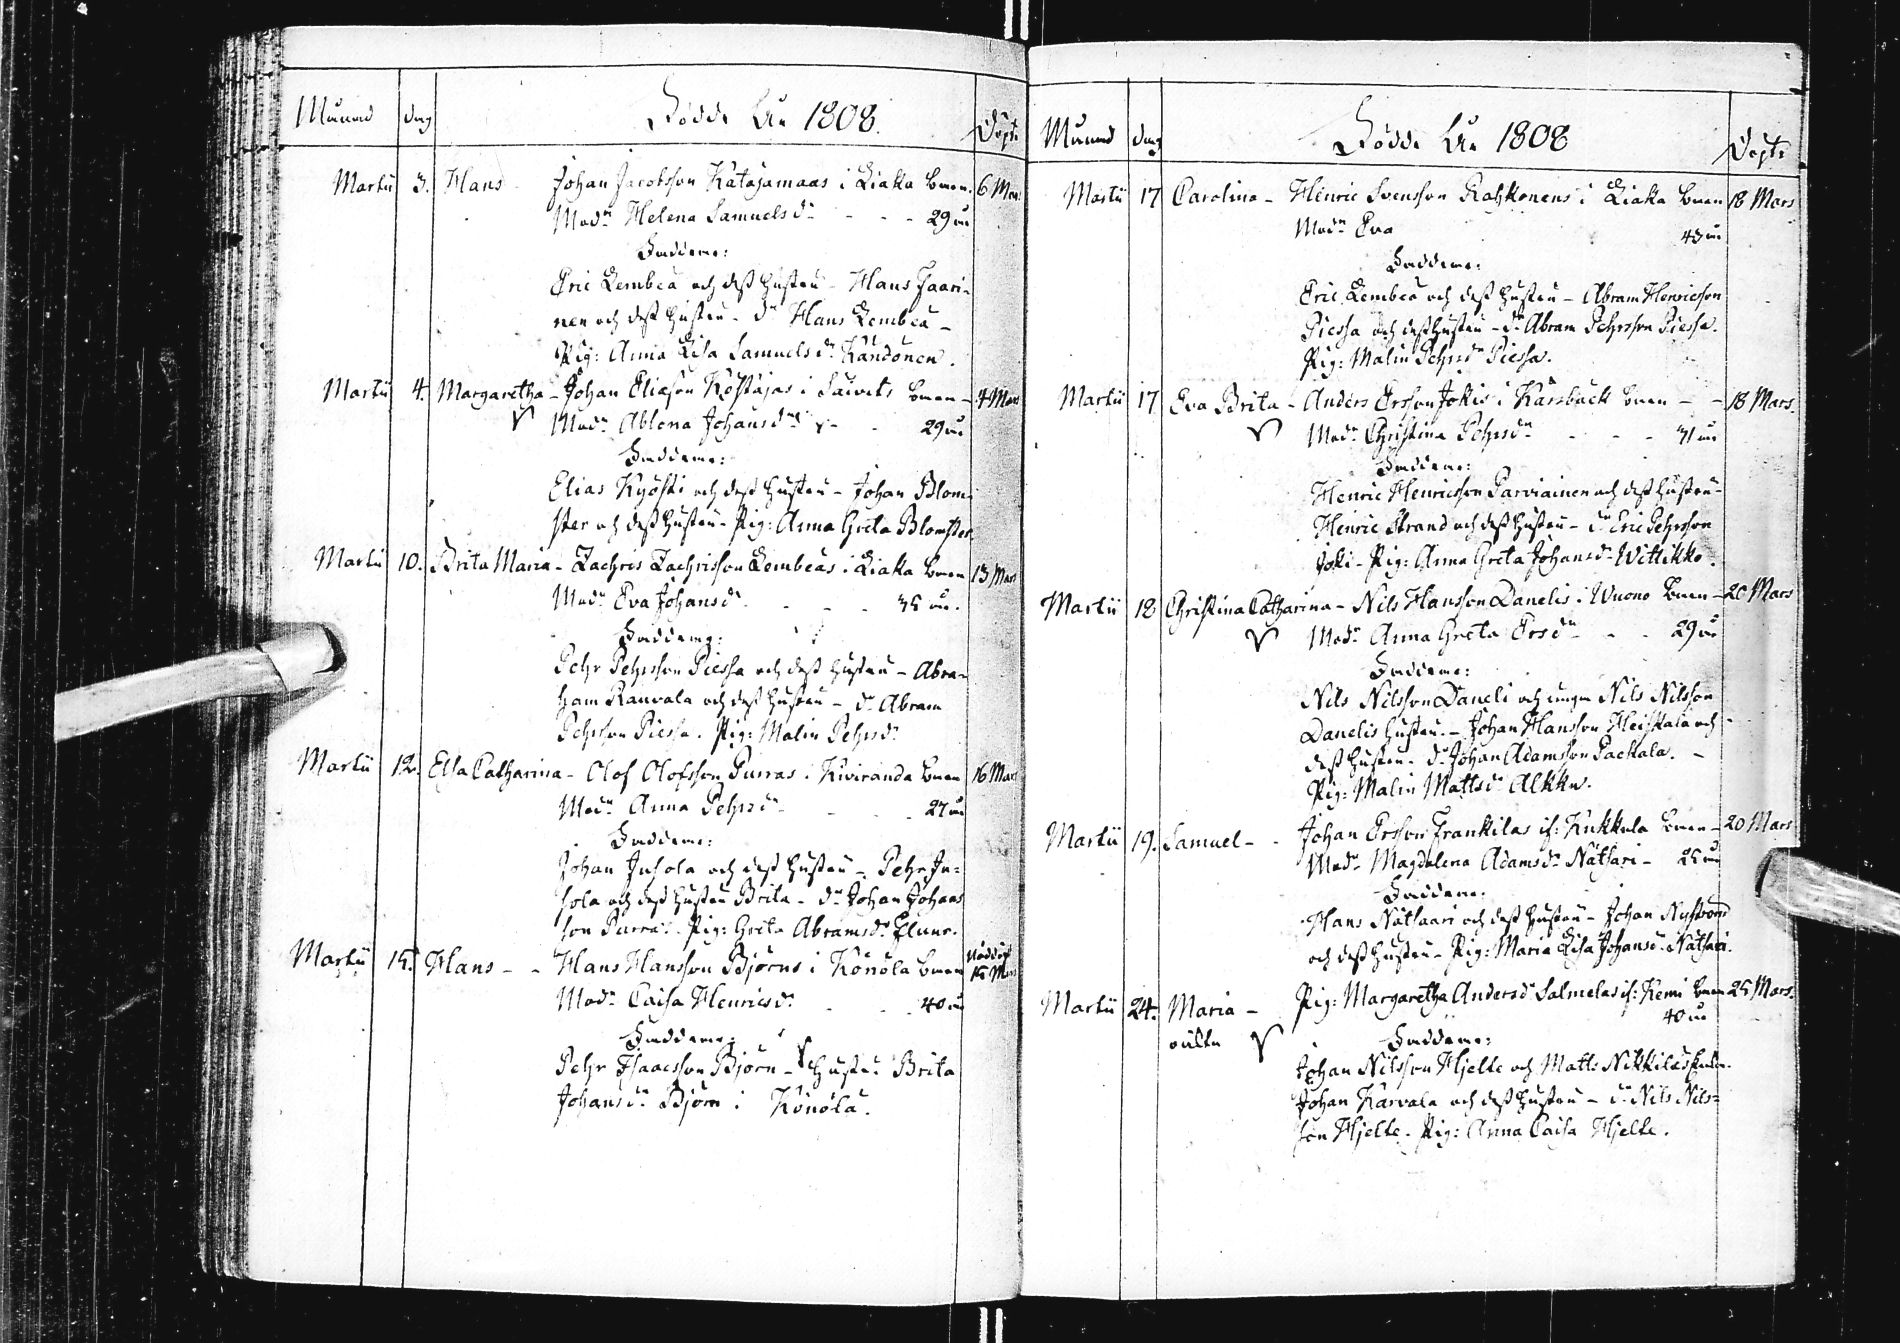 Månad dag Födde År 1808. Döpte
Martii 3. Hans Johan Jacobsson Katajamaas i Liakka barn. 6 Mars
Modn Helena Samuels dr - - - 29 år
Faddrarne:
Eric Lembea och dess hustru - Hans Jaari-
nen och dess hustru - dn Hans Lembea -
Pig: Anna Lisa Samuels dr Kandonen.
Martii 4. Margaretha - Johan Eliasson Köstäjas i Laivits barn - 4 Mars
Modn Ablona Johans dr - - 29 år
Faddrarne:
Elias Kyösti och dess hustru - Johan Blom-
ster och dess hustru - Pig: Anna Greta Blomster
Martii 10. Brita Maria - Zachris Zachrisson Lembeas i Liakka barn 13 Mars
Modn Eva Johans dr - - - 35 år.
Faddrarne:
Pehr Pehrsson Piessa och dess hustru - Abra-
ham Rauvala och dess hustru - dn Abram
Pehrsson Piessa. Pig: Malin Pehrsdr
Martii 12. Elsa Catharina - Olof Olofsson Purras i Kiviranda barn 16 Mars
Modn Anna Pehrsdr - - - 27 år
Faddrarne:
Johan Juhola och dess hustru - Pehr Ju-
hola och dess hustru Brita - dn Johan Johans
son Purra - Pig: Greta Abramsdr
Martii 15. Hans - - Hans Hansson Björns i Könölä barn Nöddöpt 15 Mars
Modn Caisa Henricsdr - - - 40 år
Faddrarne:
Pehr Isaacsson Björn - hustru Brita
Johansdr Björn i Könölä.
Månad dag Födde År 1808 Döpte
Martii 17 Carolina - Henric Svensson Rahkonens i Liakka barn 18 Mars
Modn Eva 43 år
Faddrarne:
Eric Lembea och dess hustru - Abram Henricsson
Piessa och dess hustru - dn Abram Pehrsson Piessa.
Pig: Malin Pehrsdr Piessa.
Martii 17 Eva Brita - Anders Ersson Jokis i Karsbäck barn - - 18 Mars.
Modn Christina Pehrsdr - - - 31 år
Faddrarne:
Henric Henricsson Parviainen och dess hustru -
Henric Strand och dess hustru - dn Eric Pehrsson
Joki - Pig: Anna Greta Johansdr Wittikko.
Martii 18 Christina Catharina - Nils Hansson Danelis i Wuono barn - 20 Mars
Modn Anna Greta Ersdr - - 29 år
Faddrarne:
Nils Nilsson Daneli och unga Nils Nilsson
Danelis hustru. - Johan Hansson Heiskala och
dess hustru - dn Johan Adamsson Packala. -
Pig: Malin Mattsdr Alkku.
Martii 19. Samuel - - Johan Ersson Frankilas if: Kukkula barn - 20 Mars
Modn Magdalena Adamsdr Nätsari - 25 år
Faddrarne:
Hans Nätsaari och dess hustru - Johan Nyström
och dess hustru - Pig: Maria Lisa Johansdr Nätsari.
Martii 24. Maria - Pig: Margaretha Andersdr Salmelas if: Kemi barn 25 Mars.
oäkta 40 år
Faddrarne:
Johan Nilsson Hjelte och Matts Nikkilas hustru.
Johan Karvala och dess hustru - dn Nils Nils-
son Hjelte. Pig: Anna Caisa Hjelte.